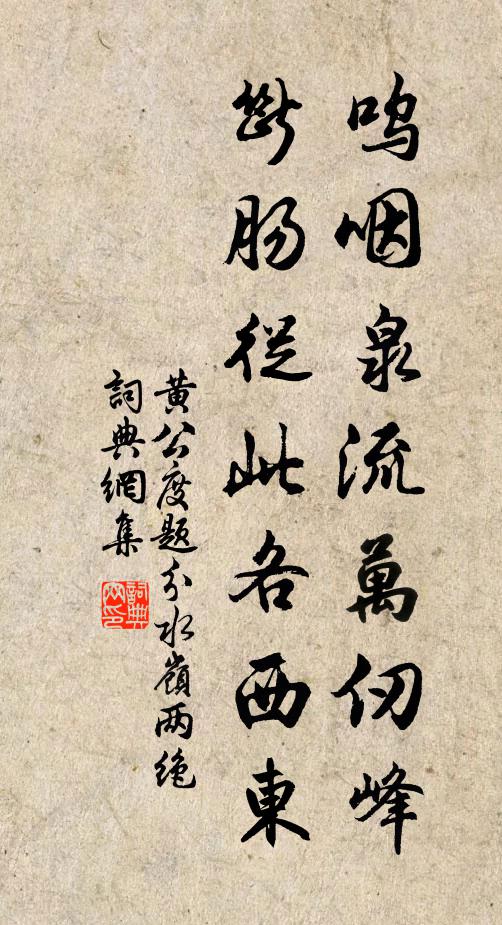 嗚咽泉流萬仞峰
斷腸從此各西東
黃公度題分水嶺兩絕
詞典網集
詞典网印